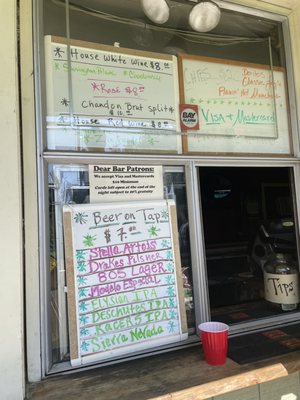 House White Wine $8.00
Sauvignon Blanc Chardonnay
Rosé $8
Chandon Brut split
$10.00
House Red Wine $8.00
CHIPS
Doritos
Classic
Flamin' Hot Munchies
BAY ALARM
VISA + Mastercard
Dear Bar Patrons:
We accept Visa and Mastercards
$20 Minimum
Cards left open at the end of the night subject to 20% gratuity
Beer on Tap
$7.00
Stella Artois
Drakes Pilsner
805 Lager
Modelo Especial
Elysian IPA
Deschutes IPA
Racer 5 IPA
Sierra Nevada
Tips